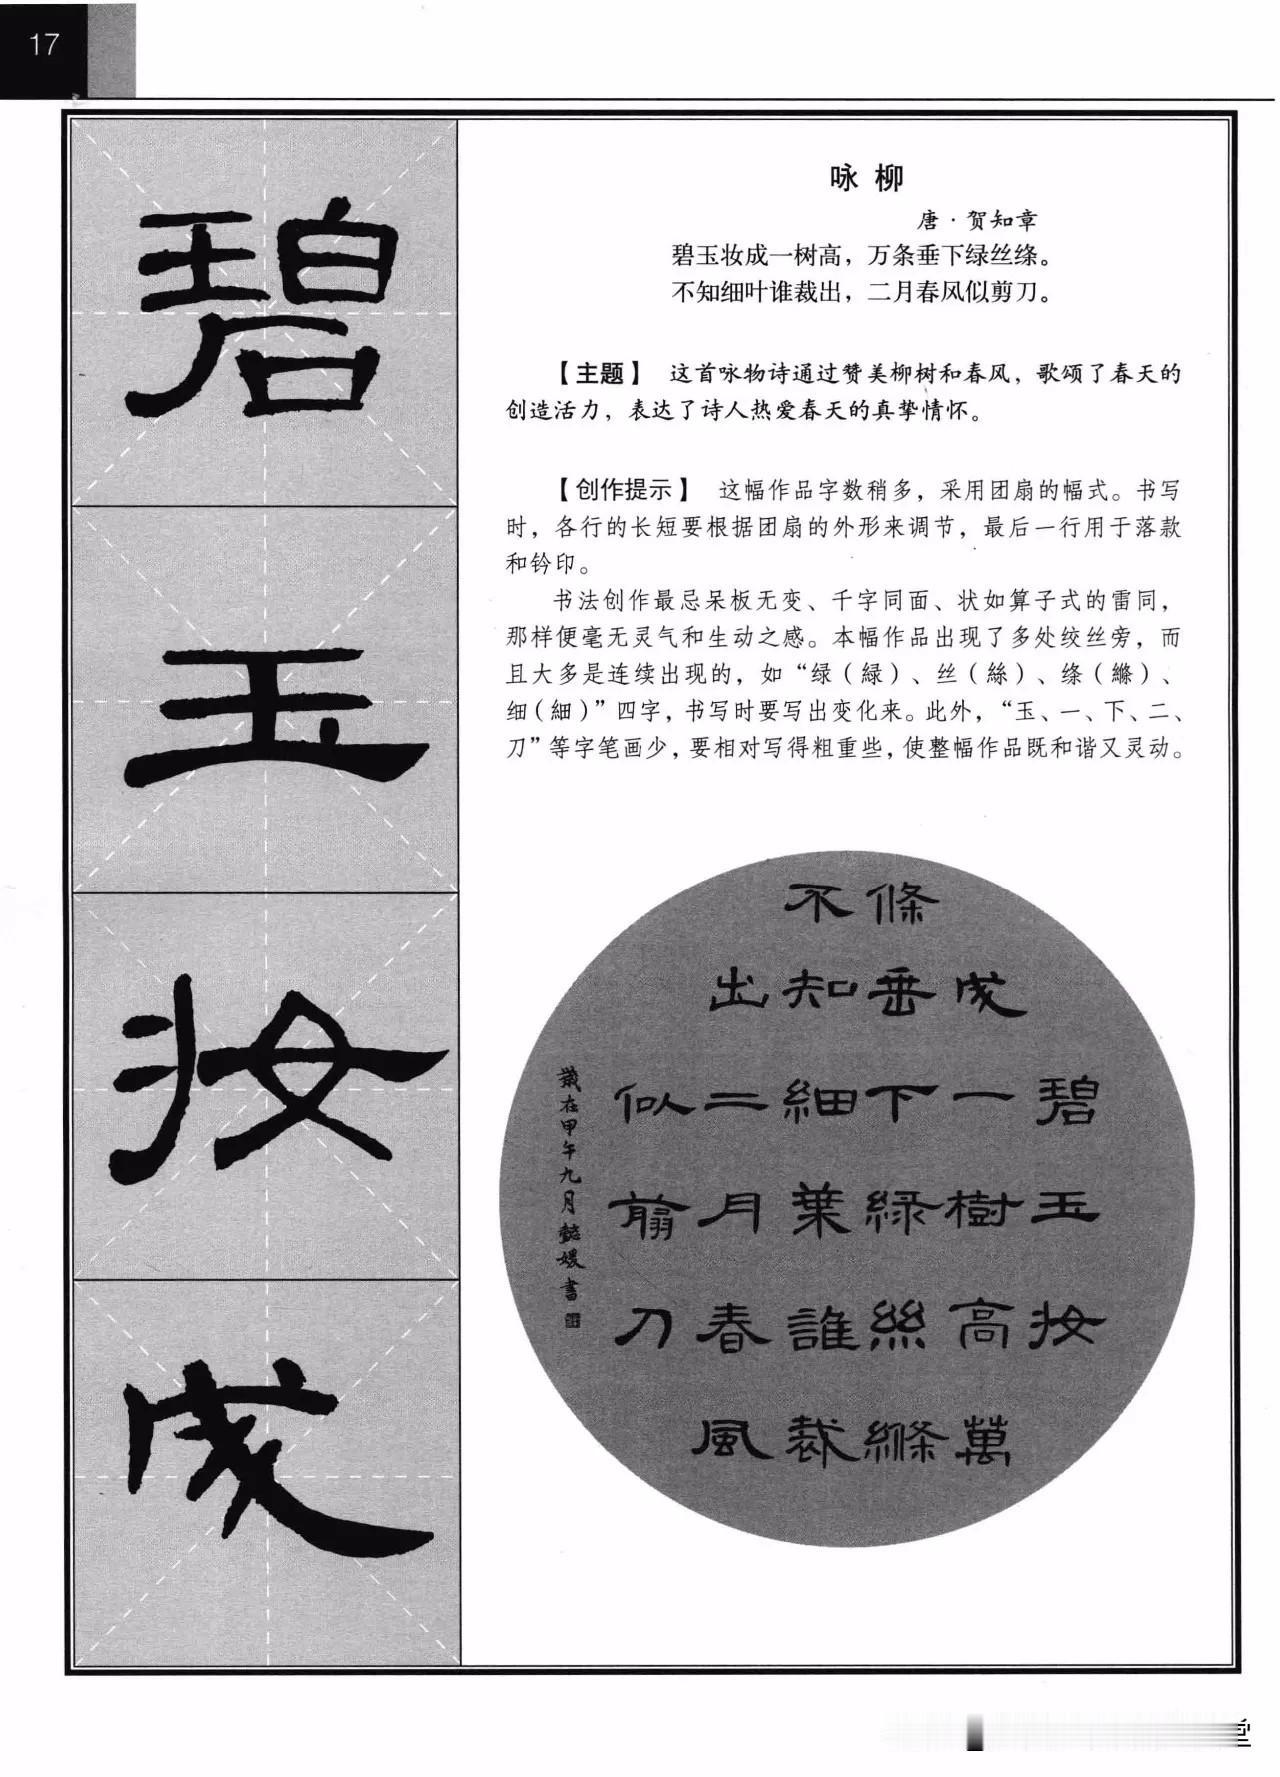 17
碧
玉
妆
成
咏柳
唐·贺知章
碧玉妆成一树高，万条垂下绿丝绦。
不知细叶谁裁出，二月春风似剪刀。
【主题】 这首咏物诗通过赞美柳树和春风，歌颂了春天的
创造活力，表达了诗人热爱春天的真挚情怀。
【创作提示】 这幅作品字数稍多，采用团扇的幅式。书写
时，各行的长短要根据团扇的外形来调节，最后一行用于落款
和钤印。
书法创作最忌呆板无变、千字同面、状如算子式的雷同，
那样便毫无灵气和生动之感。本幅作品出现了多处绞丝旁，而
且大多是连续出现的，如“绿（緑）、丝（絲）、绦（縧）、
细（細）”四字，书写时要写出变化来。此外，“玉、一、下、二、
刀”等字笔画少，要相对写得粗重些，使整幅作品既和谐又灵动。
碧玉妝
成一樹高萬
條垂下緑絲縧
不知細葉誰裁
出二月春風
似剪刀
歲在甲午九月懿媛書
堂